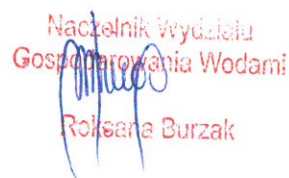 Naczelnik Wydziału
Gospodarowania Wodami
Roksana Burzak